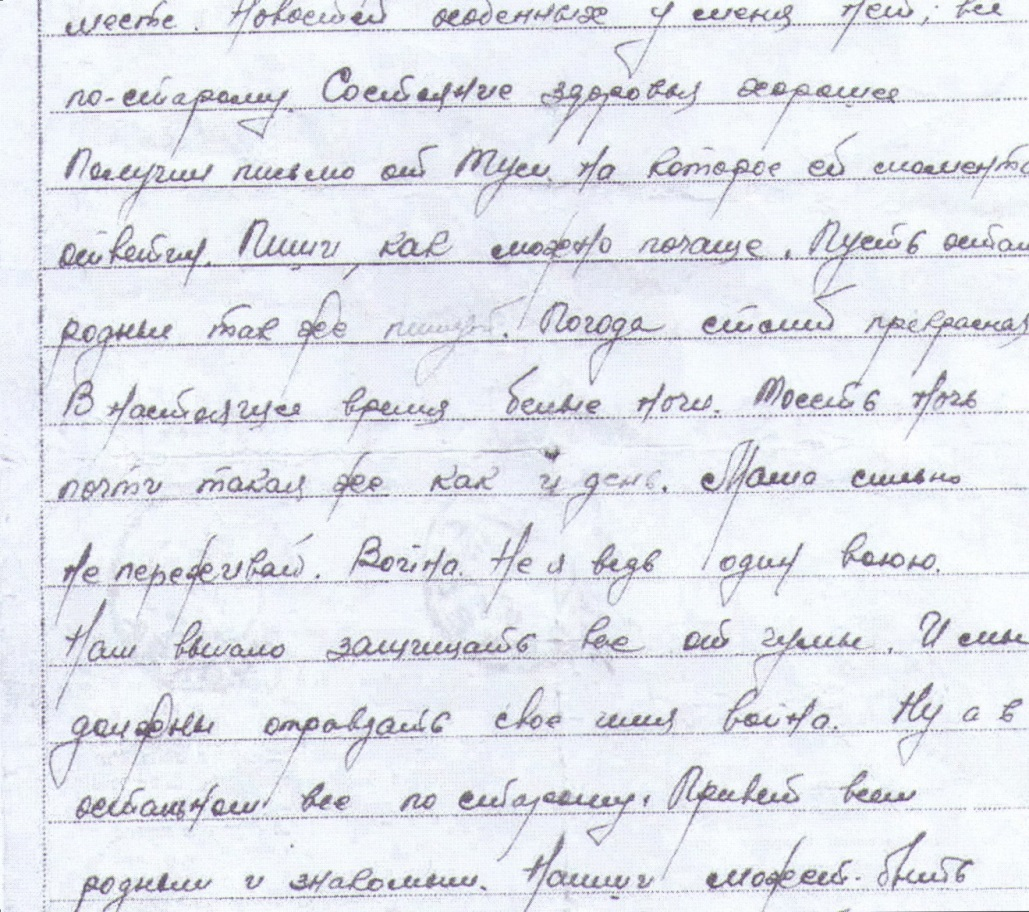 месте. Новостей особенных у меня нет, все
по-старому. Состояние здоровья хорошее
Получил письмо от Туси, на которое ей моменто
ответил. Пиши, как можно почаще. Пусть осталь
родные так же пишут. Погода стоит прекрасная
В настоящее время белые ночи. Тоесть ночь
почти такая же как и день. Мама сильно
не переживай. Война. Не я ведь один воюю.
Нам выпало защищать все от чумы. И мы
должны оправдать свое имя воина. Ну а в
остальном все по старому. Привет всем
родным и знакомым. Напиши может быть